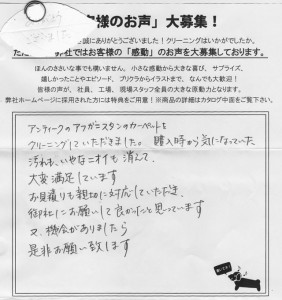 様のお声」大募集!
誠にありがとうございました!クリーニングはいかがでしたか。
社ではお客様の「感動」のお声を大募集しております。
ほんのささいな事でも構いません。小さな感動から大きな喜び、サプライズ、
嬉しかったことやエピソード、プリクラからイラストまで、なんでも大歓迎!
皆様の声が、社員、工場、現場スタッフ全員の大きな原動力となります。
弊社ホームページに採用された方には特典をご用意!※商品の詳細はカタログ中面をご覧下さい。
アンティークのアフガニスタンのカーペットを
クリーニングしていただきました。購入時から気になっていた
汚れも、いやなニオイも消えて、
大変満足しています
お見積りも親切に対応していただき、
御社にお願いして良かったと思っています
又、機会がありましたら
是非お願い致します